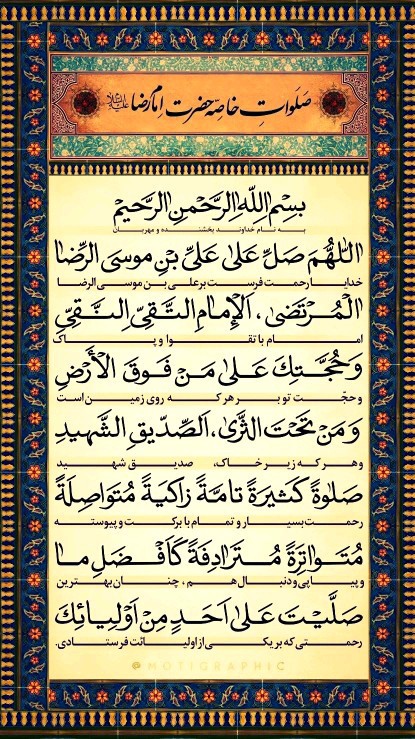 صَلَواتِ خاصّهٔ حضرت اِمام رضا علیه‌السلام
بِسْمِ اللّٰهِ الرَّحْمٰنِ الرَّحیمْ
به نام خداوند بخشنده و مهربان
اَللّٰهُمَ صَلِّ عَلیٰ عَلیِّ بْنِ موسَی الرِّضا
خدایا رحمت فرست بر علی بن موسی الرضا
الْمُرْتَضیٰ ، اَلْاِمامِ التَّقِیِّ النَّقِیِّ
امام با تقوا و پاک
وَ حُجَّتِكَ عَلیٰ مَنْ فَوْقَ الْأَرْضِ
و حجّت تو بر هر که روی زمین است
وَ مَنْ تَحْتَ الثَّریٰ، اَلصِّدّیقِ الشَّهیدِ
و هر که زیر خاک، صدیق شهید
صَلوٰةً كَثیرَةً تامَّةً زاكَیةً مُتَواصِلَةً
رحمت بسیار و تمام با برکت و پیوسته
مُتَواتِرَةً مُتَرادِفَةً كَاَفْضَلِ ما
و پیاپی و دنبال هم ، چنان بهترین
صَلَّیْتَ عَلیٰ اَحَدٍ مِنْ اَوْلِیائِكَ
رحمتی که بر یکی از اولیائت فرستادی.
@MOTIGRAPHIC